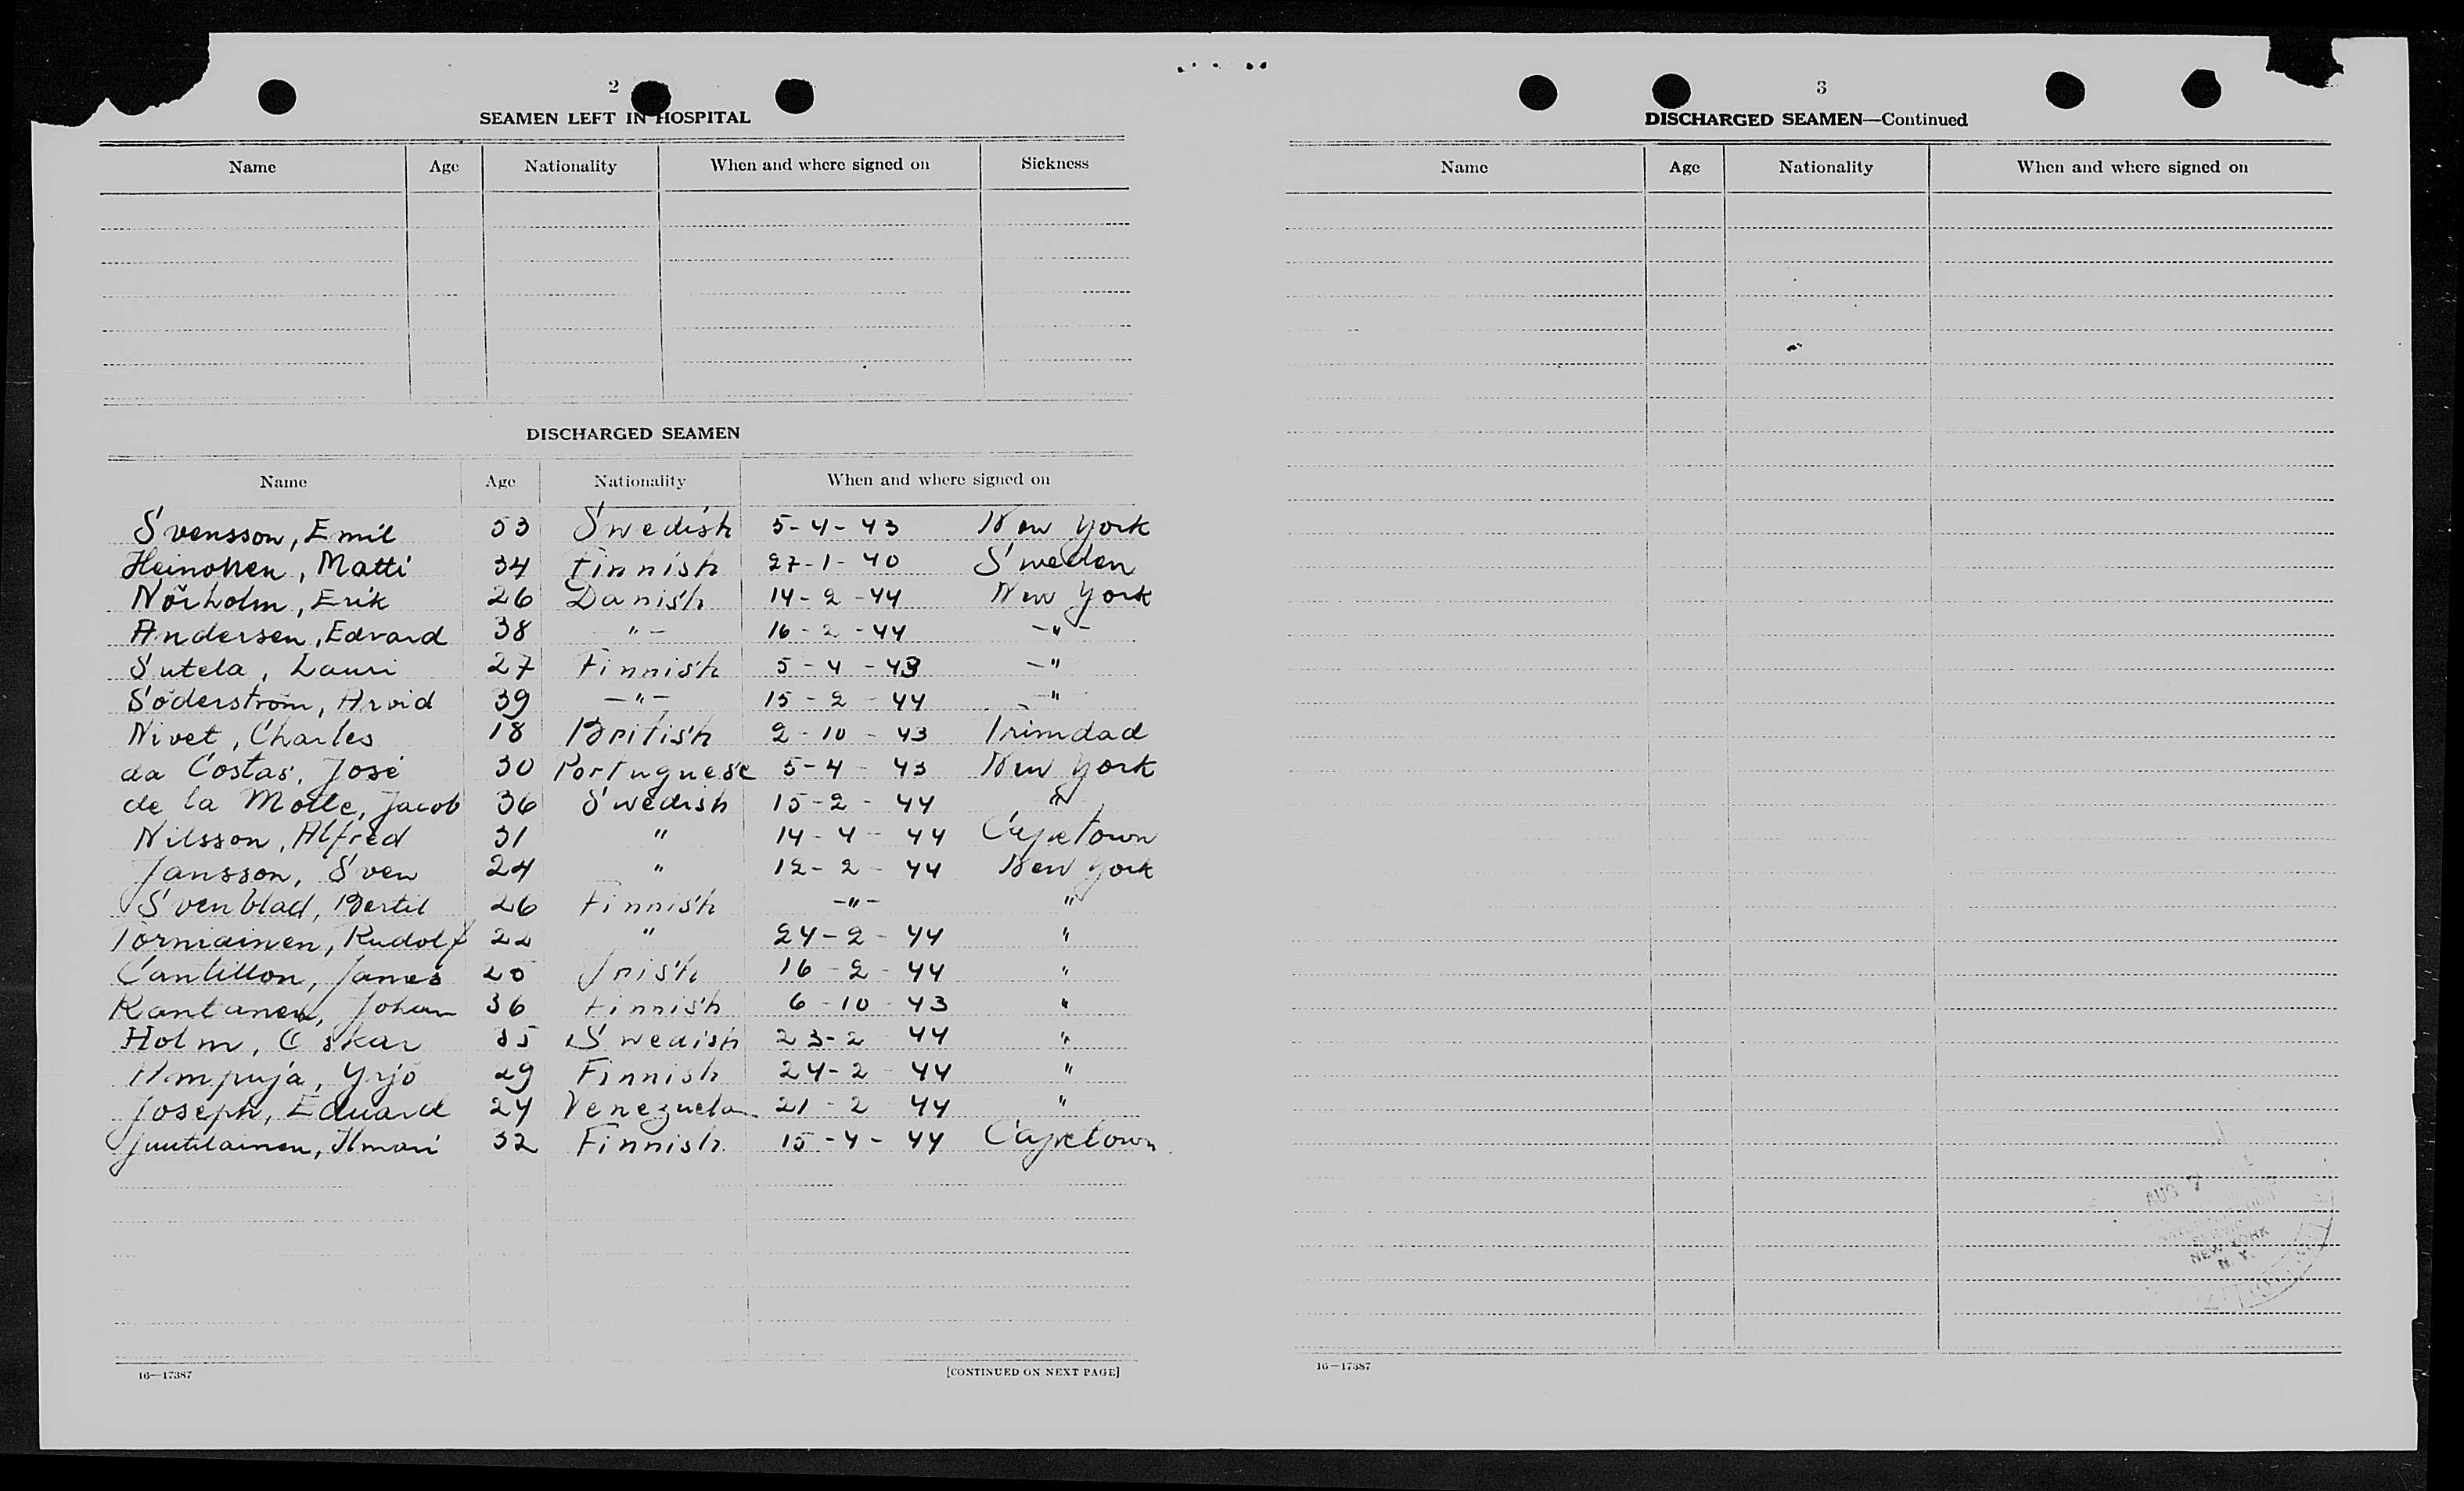 2
SEAMEN LEFT IN HOSPITAL
Name Age Nationality When and where signed on Sickness
DISCHARGED SEAMEN
Name Age Nationality When and where signed on
Svensson, Emil 53 Swedish 5-4-43 New York
Heinonen, Matti 34 Finnish 27-1-40 Sweden
Nörholm, Erik 26 Danish 14-2-44 New York
Andersen, Edvard 38 -"- 16-2-44 -"-
Sutela, Lauri 27 Finnish 5-4-43 -"
Söderström, Arvid 39 -"- 15-2-44 -"
Nivet, Charles 18 British 2-10-43 Trinidad
da Costas, José 30 Portuguese 5-4-43 New York
de la Motte, Jacob 36 Swedish 15-2-44 "
Nilsson, Alfred 31 " 14-4-44 Capetown
Jansson, Sven 24 " 12-2-44 New York
Svenblad, Bertil 26 Finnish -"- "
Torniainen, Rudolf 22 " 24-2-44 "
Cantillon, James 20 Irish 16-2-44 "
Kantanen, Johan 36 Finnish 6-10-43 "
Holm, Oskar 35 Swedish 23-2-44 "
Yrjö 29 Finnish 24-2-44 "
Joseph, Eduard 24 Venezuela 21-2-44 "
Juutilainen, Ilmari 32 Finnish 15-4-44 Capetown
16—17387 [CONTINUED ON NEXT PAGE]
3
DISCHARGED SEAMEN—Continued
Name Age Nationality When and where signed on
AUG 7
NEW YORK
N. Y.
16—17387